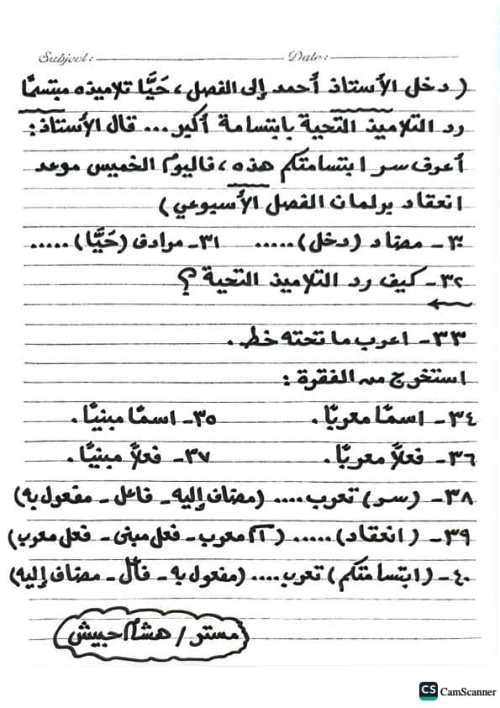 Subject: Date:
( دخل الأستاذ أحمد إلى الفصل ، حَيَّا تلاميذه مبتسمًا
رد التلاميذ التحية بابتسامة أكبر ... قال الأستاذ :
أعرف سر ابتسامتكم هذه ، فاليوم الخميس موعد
انعقاد برلمان الفصل الأسبوعي )
٣٠ - مضاد (دخل) ..... ٣١ - مرادف (حَيَّا) .....
٣٢ - كيف رد التلاميذ التحية ؟
٣٣ - اعرب ما تحته خط .
استخرج من الفقرة :
٣٤ - اسمًا معربًا . ٣٥ - اسمًا مبنيًا .
٣٦ - فعلاً معربًا . ٣٧ - فعلاً مبنيًا .
٣٨ - (سر) تعرب .... (مضاف إليه - فاعل - مفعول به)
٣٩ - (انعقاد) ..... (اسم معرب - فعل مبنى - فعل معرب)
٤٠ - (ابتسامتكم) تعرب .... (مفعول به - فاعل - مضاف إليه)
مستر / هشام حبيش
CS CamScanner